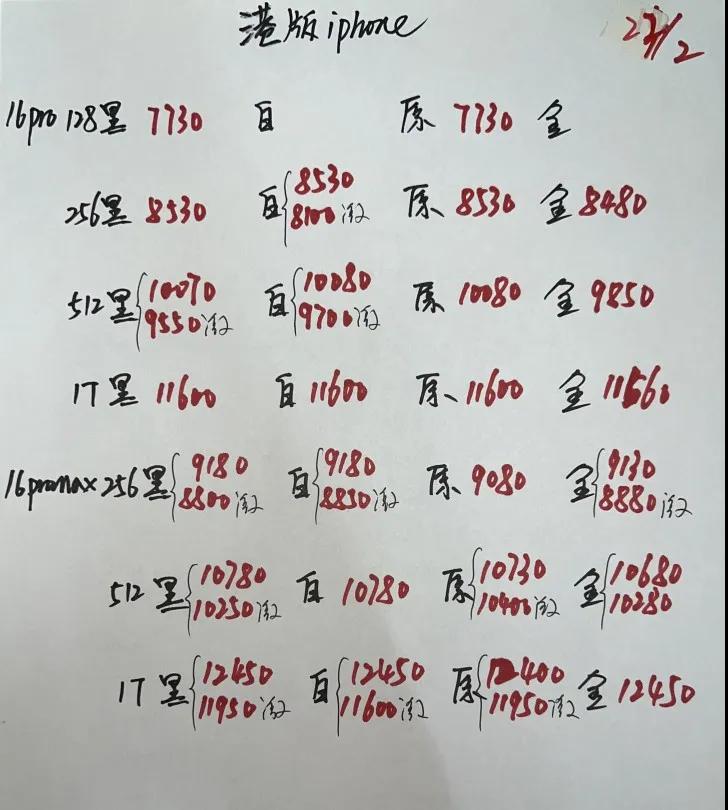 港版iphone 23/2
16pro 128黑 7730 白 原 7730 金
256黑 8530 白 8530 8100激 原 8530 金 8480
512黑 10070 9550激 白 10080 9700激 原 10080 金 9850
1T 黑 11600 白 11600 原 11600 金 11560
16promax 256黑 9180 8800激 白 9180 8830激 原 9080 金 9130 8880激
512 黑 10780 10250激 白 10780 原 10730 10400激 金 10680 10280
1T 黑 12450 11950激 白 12450 11600激 原 12400 11950激 金 12450